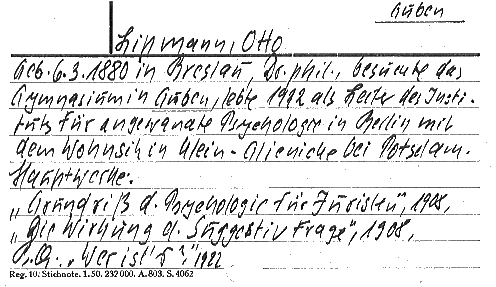 Guben
Lipmann, Otto
Geb. 6.3.1880 in Breslau, Dr. phil., besuchte das
Gymnasium in Guben, lebte 1922 als Leiter des Insti-
tuts für angewandte Psychologie in Berlin mit
dem Wohnsitz in Klein-Glienicke bei Potsdam.
Hauptwerke:
„Grundriß d. Psychologie für Juristen", 1908,
„Die Wirkung d. Suggestivfrage", 1908,
„Wer ist's?", 1922
Reg. 10: Stichnote. 1. 50. 232 000. A. 803. S. 4062